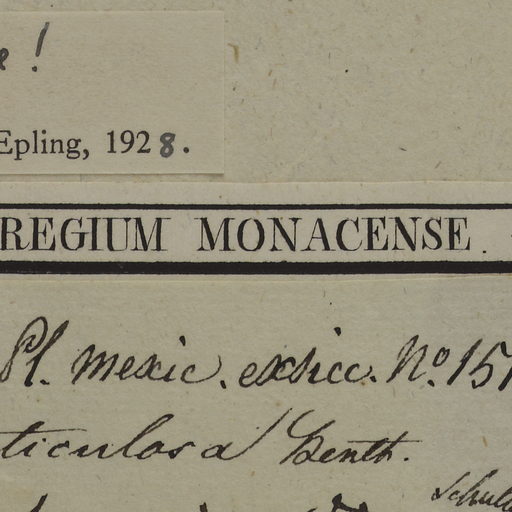 e!
Epling, 1928.
REGIUM MONACENSE.
Pl. mexic. exsicc. No. 151
ticulosa Benth.